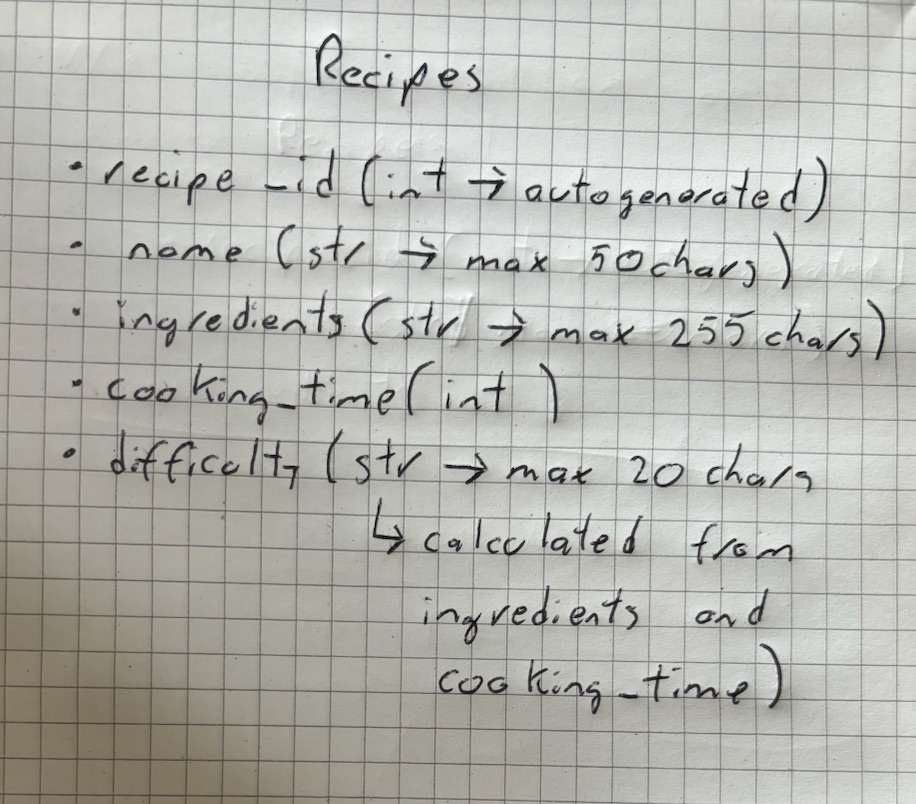 Recipes
• recipe_id (int → autogenerated)
• name (str → max 50 chars)
• ingredients (str → max 255 chars)
• cooking_time (int)
• difficulty (str → max 20 chars
↳ calculated from
ingredients and
cooking_time)